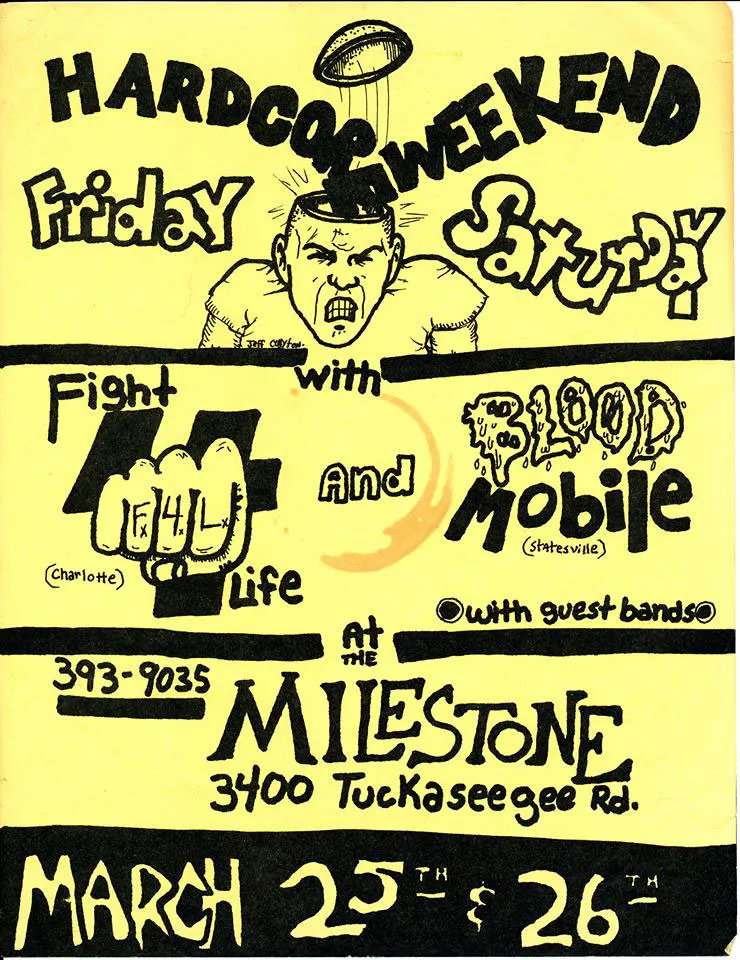 HARDCORE WEEKEND
Friday Saturday
Jeff Clayton
with
Fight 4 Life
F4L
(Charlotte)
And
BLOOD
Mobile
(Statesville)
with guest bands
At
THE
393-9035
MILESTONE
3400 Tuckaseegee Rd.
MARCH 25TH & 26TH